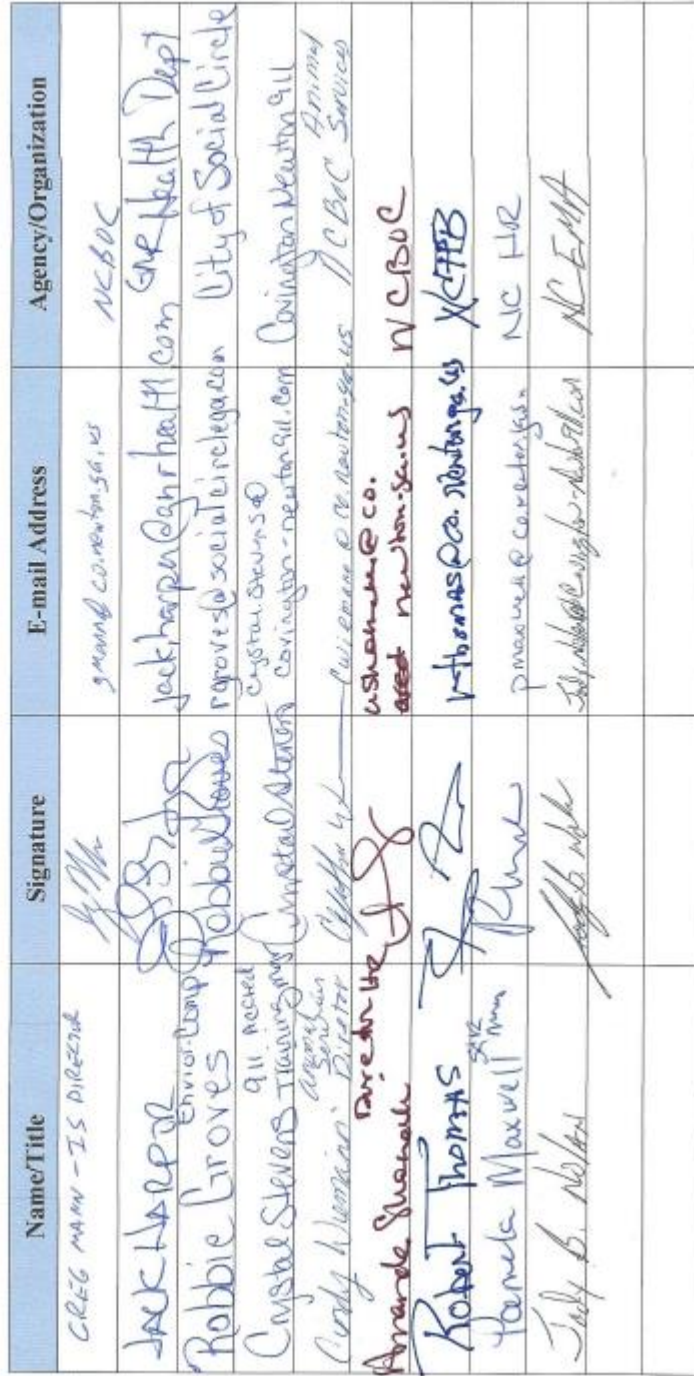 Name/Title Signature E-mail Address Agency/Organization
GREG MANN - IS DIRECTOR gmann@co.newton.ga.us NCBOC
JACK HARPER jack.harper@gnrhealth.com GNR Health Dept
Robbie Groves Envior. Comp Robbie Groves rgroves@socialcirclega.com City of Social Circle
Crystal Stevens 911 Accred Training Mgr Crystal Stevens Crystal.Stevens@ Covington-newton911.com Covington Newton 911
Cindy Wiemann Animal Services Director cwiemann@co.newton.ga.us NCBOC Animal Services
Director HR @co. newton.ga.us NCBOC
Robert Thomas rthomas@co.newton.ga.us
Pamela Maxwell pmaxwell@co.newton.ga.us NC HR
Jody B. Nolan NCEMA